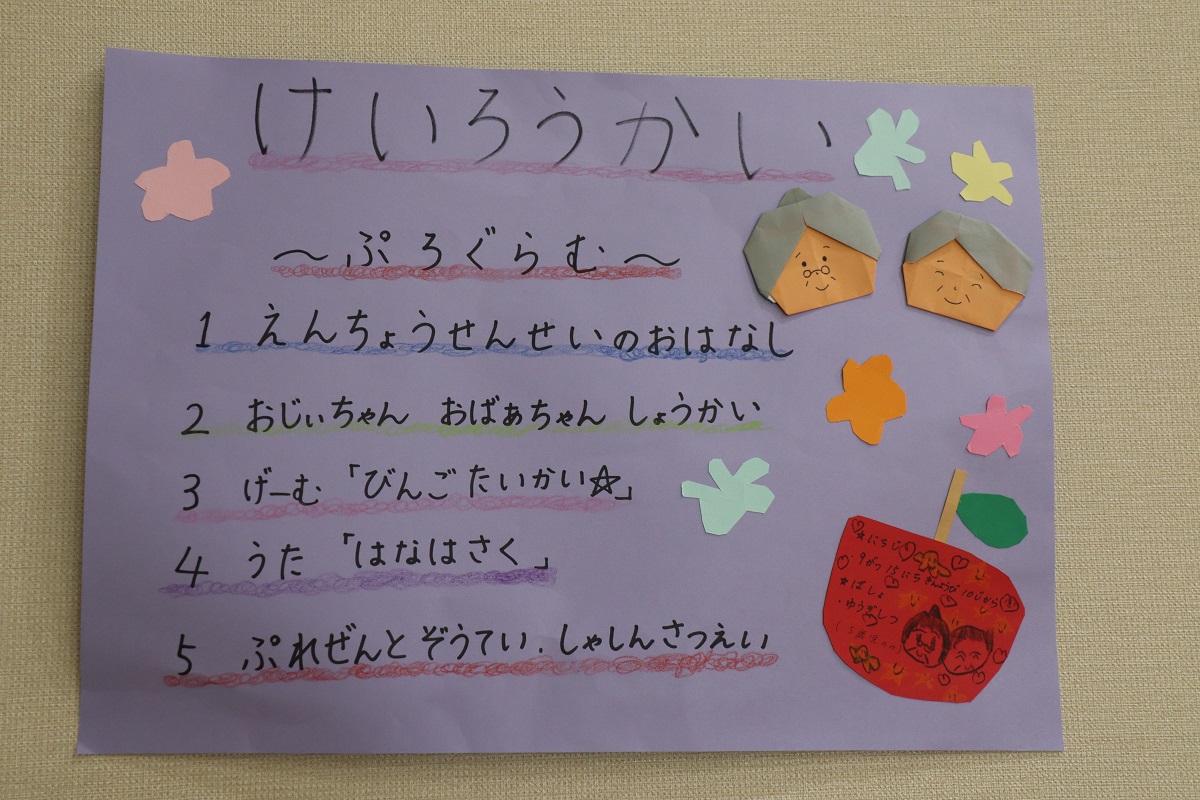 けいろうかい
～ぷろぐらむ～
1 えんちょうせんせいのおはなし
2 おじぃちゃん おばぁちゃん しょうかい
3 げーむ「びんごたいかい☆」
4 うた「はなはさく」
5 ぷれぜんとぞうてい.しゃしんさつえい
★にちじ
・9がつ15にちきんようび10じから
★ばしょ
・ゆうぎしつ